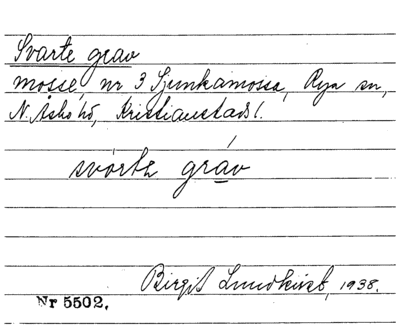 Svarte grav
mosse, nr 3 Sjunkamossa, Rya sn,
N. Åsbo hd, Kristianstads l.
svòrtɛ gráv
Birgit Lundkvist, 1938.
Nr 5502.